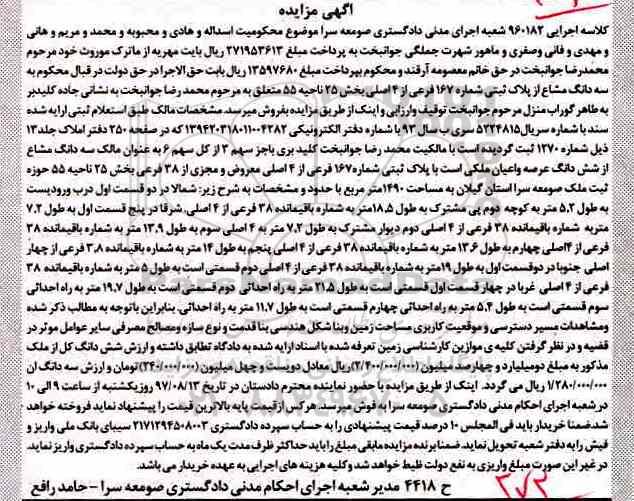 آگهی مزایده
کلاسه اجرایی ۹۶۰۱۸۲ شعبه اجرای مدنی دادگستری صومعه سرا موضوع محکومیت اسداله و هادی و محبوبه و محمد و مریم و هانی
و مهدی و فانی وصغری و ماهور شهرت جملگی جوانبخت به پرداخت مبلغ ۳۷۱۹۵۳۶۱۳ ریال بابت مهریه از ماترک موروث خود مرحوم
محمدرضا جوانبخت در حق خانم معصومه آرقند و محکوم بپرداخت مبلغ ۱۳۵۹۷۶۸۰ ریال بابت حق الاجرا در حق دولت در قبال محکوم به
سه دانگ مشاع از پلاک ثبتی شماره ۱۶۷ فرعی از ۴ اصلی بخش ۲۵ ناحیه ۵۵ متعلق به مرحوم محمد رضا جوانبخت به نشانی جاده کلیدبر
به طاهر گوراب منزل مرحوم جوانبخت توقیف وارزانی و اینک از طریق مزایده بفروش میرسد. مشخصات مالک طبق استعلام ثبتی ارایه شده
سند با شماره سریال ۵۲۲۴۸۱۵ سری ب سال ۹۳ با شماره دفتر الکترونیکی ۱۳۹۴۲۰۳۱۸۰۱۱۰۰۴۲۸۲ که در صفحه ۲۵۰ دفتر املاک جلد ۱۳
ذیل شماره ۱۲۷۰ ثبت گردیده است با مالکیت محمد رضا جوانبخت کلید بری باجز سهم ۳ از کل سهم ۶ به عنوان مالک سه دانگ مشاع
از شش دانگ عرصه واعیان ملکی است با پلاک ثبتی شماره ۱۶۷ فرعی از ۴ اصلی معروض و مجزی از ۳۸ فرعی بخش ۲۵ ناحیه ۵۵ حوزه
ثبت ملک صومعه سرا استان گیلان به مساحت ۱۴۹۰ متر مربع با حدود و مشخصات به شرح زیر: شمالا در دو قسمت اول درب ورودیست
به طول ۵.۲ متر به کوچه دوم پی مشترک به طول ۱۸.۵ متر به شماره باقیمانده ۳۸ فرعی از ۴ اصلی. شرقا در پنج قسمت اول به طول ۷.۲
متر به شماره باقیمانده ۳۸ فرعی از ۴ اصلی دوم دیوار مشترک به طول ۷.۲ متر به ۴ اصلی سوم به طول ۱۳.۹ متر به شماره باقیمانده ۳۸
فرعی از ۴ اصلی چهارم به طول ۱۳.۶ متر به شماره باقیمانده ۳۸ فرعی از ۴ اصلی پنجم به طول ۱۴ متر به شماره باقیمانده ۳۸ فرعی از چهار
اصلی جنوبا در دوقسمت اول به طول ۱۹ متر به شماره باقیمانده ۳۸ فرعی از ۴ اصلی دوم قسمتی است به طول ۵ متر به شماره باقیمانده ۳۸
فرعی از ۴ اصلی غربا در چهار قسمت اول قسمتی است به طول ۲۱.۵ متر به راه احداثی دوم قسمتی است به طول ۱۹.۷ متر به راه احداثی
سوم قسمتی است به طول ۵.۴ متر به راه احداثی چهارم قسمتی است به طول ۱۱.۷ متر به راه احداثی. بنابراین باتوجه به مطالب ذکر شده
ومشاهدات مسیر دسترسی و موقعیت کاربری مساحت زمین وبنا شکل هندسی بنا قدمت و نوع سازه ومصالح مصرفی سایر عوامل موثر در
قضیه و در نظر گرفتن کلیه ی موازین کارشناسی زمین تعرفه شده با اسناد ارایه شده به دادگاه تطابق داشته و ارزش شش دانگ کل از ملک
مذکور به مبلغ دومیلیارد و چهارصد میلیون (۲/۴۰۰/۰۰۰/۰۰۰) ریال معادل دویست و چهل میلیون (۲۴۰/۰۰۰/۰۰۰) تومان و ارزش سه دانگ ان
۱/۲۸۰/۰۰۰/۰۰۰ ریال می گردد. اینک از طریق مزایده با حضور نماینده محترم دادستان در تاریخ ۹۷/۰۸/۱۳ روز یکشنبه از ساعت ۹ الی ۱۰
در شعبه اجرای احکام مدنی دادگستری صومعه سرا به فوش میرسد. هرکس از قیمت پایه بالاترین قیمت را پیشنهاد نماید فروخته خواهد
شد. ضمنا خریدار باید فی المجلس ۱۰ درصد قیمت پیشنهادی را به حساب سپرده دادگستری ۲۱۷۱۲۹۴۵۰۸۰۰۳ سیبای بانک ملی واریز و
فیش را به دفتر شعبه تحویل نماید. ضمنا برنده مزایده مابقی مبلغ را باید حداکثر ظرف مدت یک ماه به حساب سپرده دادگستری واریز نماید.
در غیر این صورت مبلغ واریزی به نفع دولت ظبط خواهد شد وکلیه هزینه های اجرایی به عهده خریدار می باشد.
ح ۴۴۱۸ مدیر شعبه اجرای احکام مدنی دادگستری صومعه سرا - حامد رافع
۳۷۳